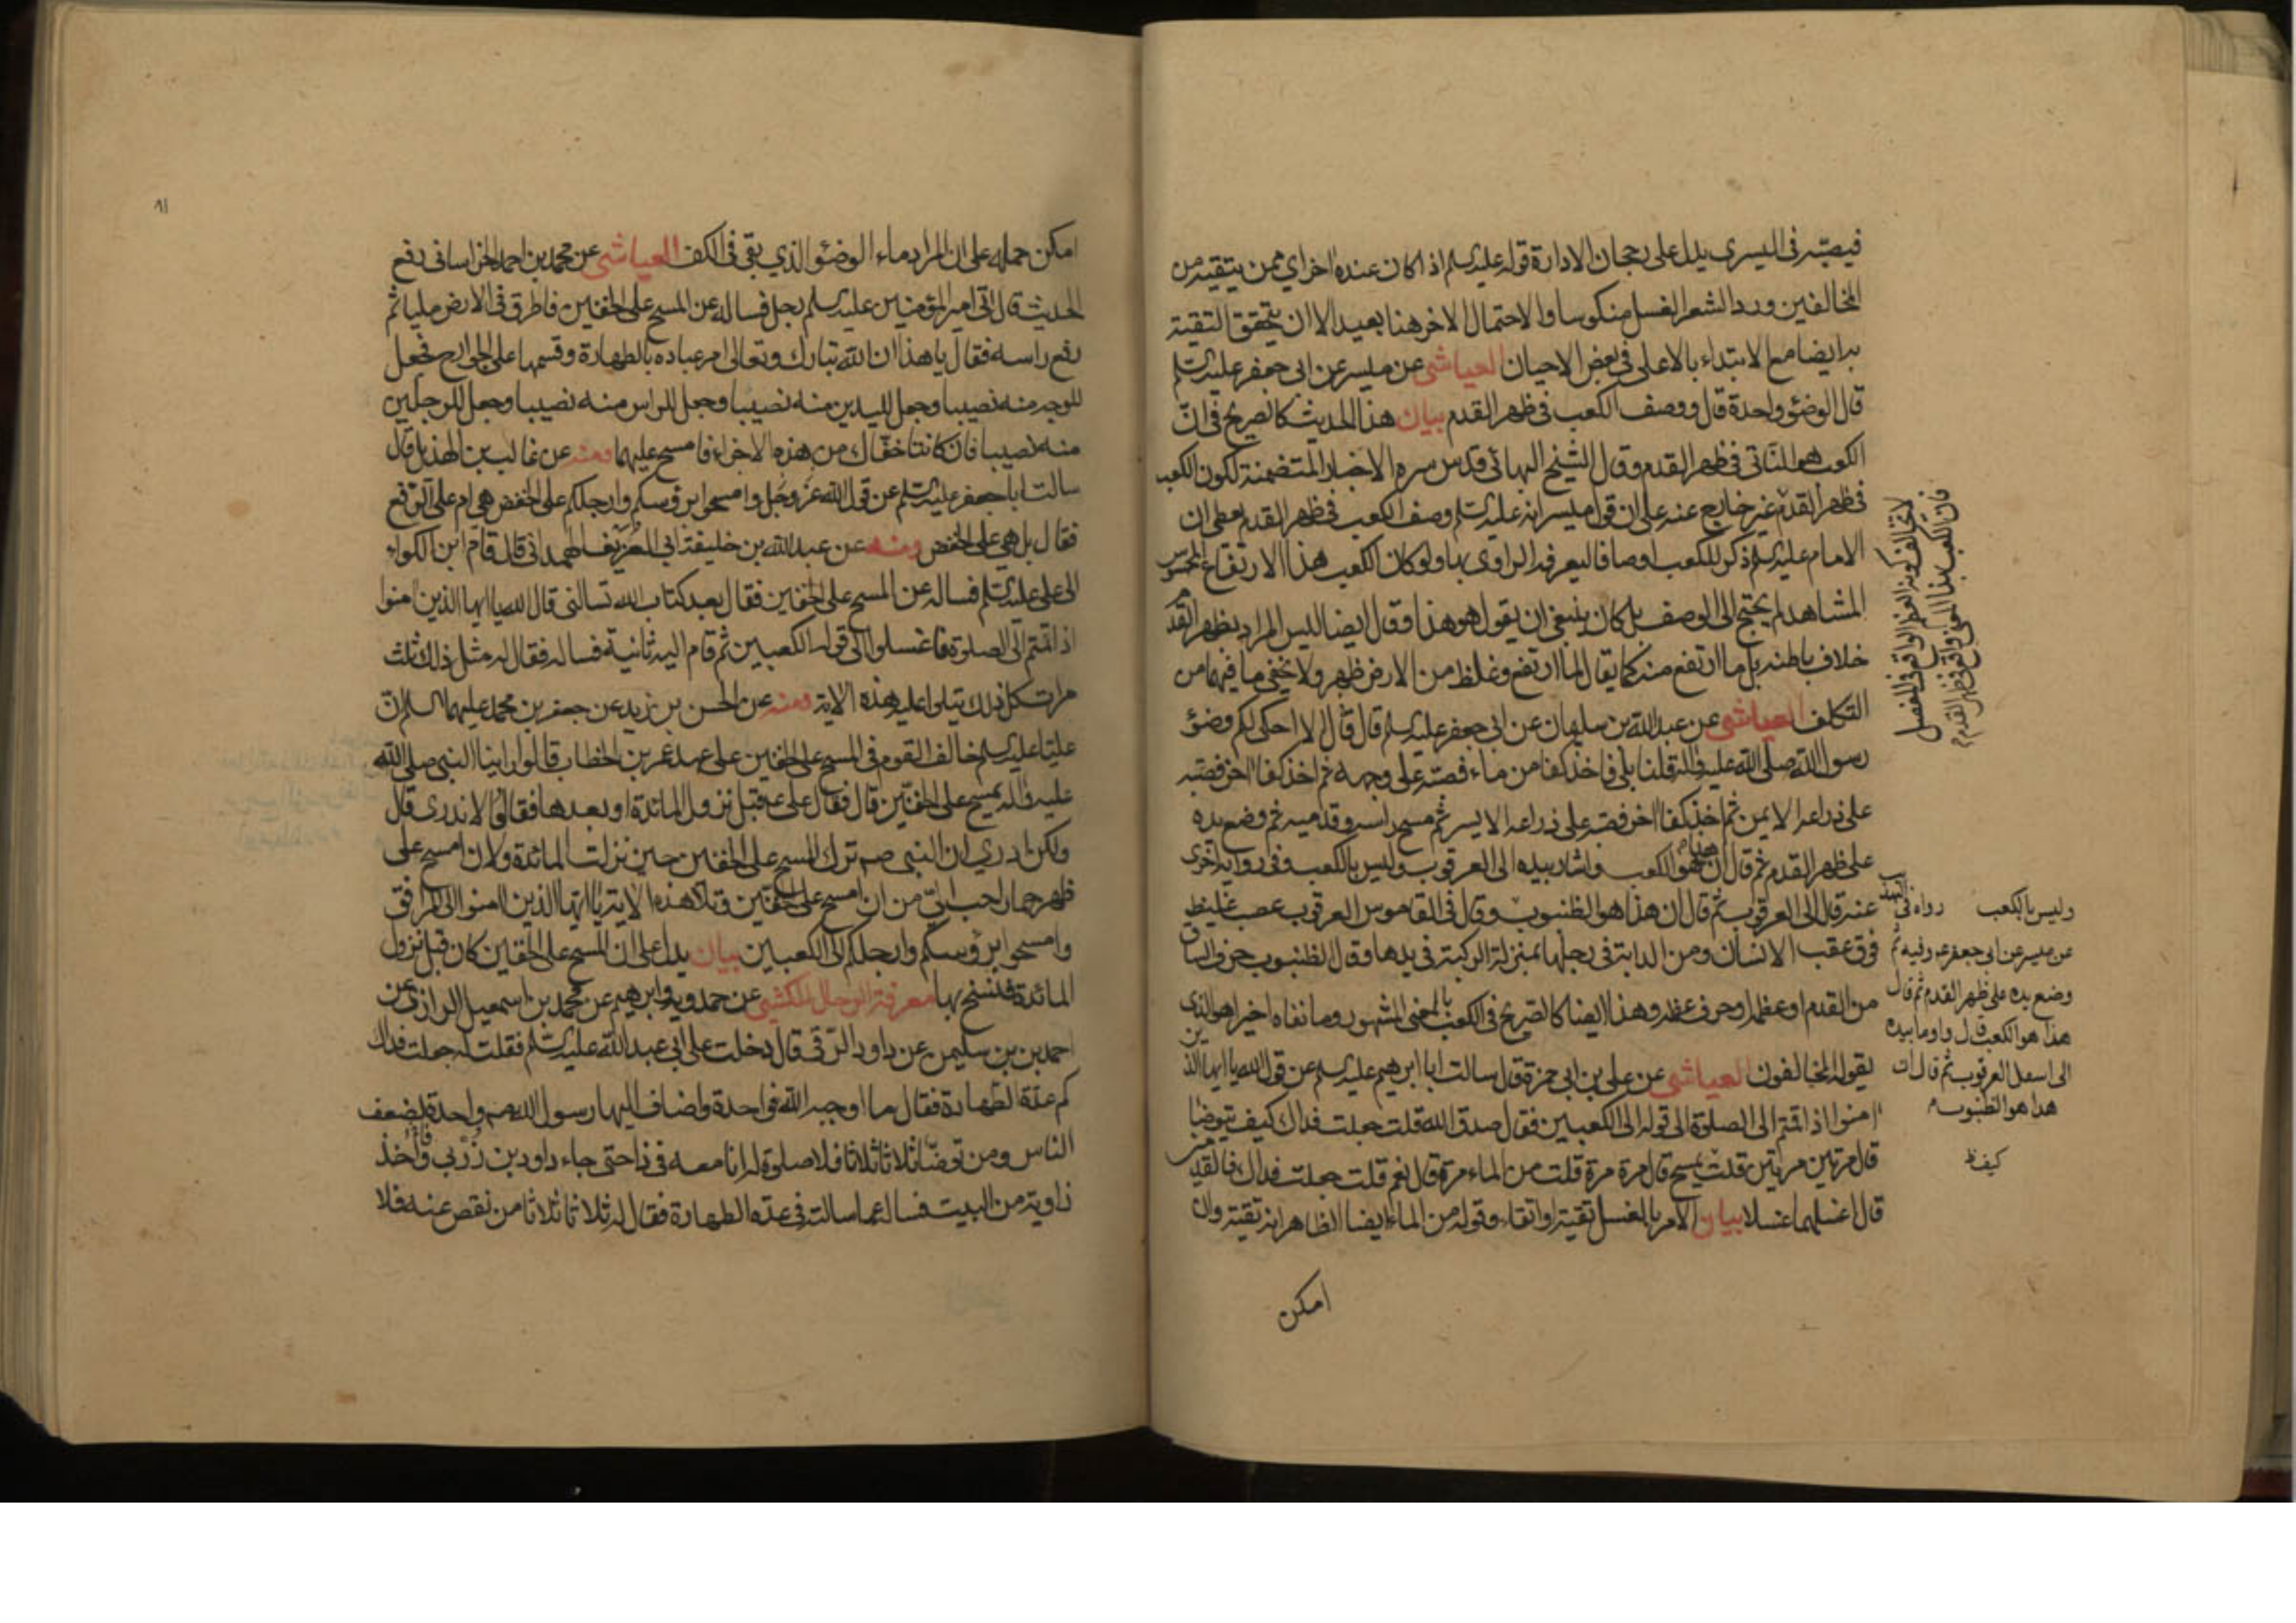 فيصبّه في اليسرى يدل على رجحان الادارة قوله عليه السلم اذا كان عنده اخر اي ممن يتقيه من
المخالفين ورد الشعر الغسل منكوسا والاحتمال الاخر هنا بعيد الا ان يتحقق التقية
به ايضا مع الابتداء بالاعلى في بعض الاحيان العياشى عن ميسر عن ابى جعفر عليه السلم
قال الوضؤ واحدة قال ووصف الكعب في ظهر القدم بيان هذا الحديث كالصريح فى انّ
الكعب هو الناتى فى ظهر القدم وقال الشيخ البهائي قدس سره الاخبار المتضمنة لكون الكعب
فى ظهر القدم غير خارج عنه على ان قول ميسر انه عليه السلم وصف الكعب فى ظهر القدم يعطى ان
الامام عليه السلم ذكر للكعب اوصافا ليعرفه الراوى بها ولو كان الكعب هذا الارتفاع المحسوس
المشاهد لم يحتج الى الوصف بل كان ينبغى ان يقول هو هذا وقال ايضا ليس المراد بظهر القدم
خلاف باطنه بل ما ارتفع منه كما يقال لما ارتفع وغلظ من الارض ظهر ولا يخفى ما فيهما من
التكلف العياشى عن عبد الله بن سليمان عن ابى جعفر عليه السلم قال قال الا احكى لكم وضؤ
رسول الله صلى الله عليه وآله قلنا بلى فاخذ كفا من ماء فصبّه على وجهه ثم اخذ كفا اخر فصبه
على ذراعه الايمن ثم اخذ كفا اخر فصبه على ذراعه الايسر ثم مسح راسه وقدميه ثم وضع يده
على ظهر القدم ثم قال ان هذا هو الكعب واشار بيده الى العرقوب وليس بالكعب وفى رواية اخرى
عنه قال الى العرقوب ثم قال ان هذا هو الظنبوب وقال فى القاموس العرقوب عصب غليظ
فوق عقب الانسان ومن الدابة فى رجلها بمنزلة الركبة فى يدها وقال الظنبوب حرف الساق
من القدم او عظمه او حرف عظمه وهذا ايضا كالصريح فى الكعب بالمعنى المشهور وما نفاه اخيرا هو الذى
يقوله المخالفون العياشى عن على بن ابى حمزة قال سالت ابا ابرهيم عليه السلم عن قول الله يا ايها الذين
امنوا اذا قمتم الى الصلوة الى قوله الى الكعبين فقال صدق الله قلت جعلت فداك كيف يتوضا
قال مرتين مرتين قلت يمسح قال مرة مرة قلت من الماء مرة قال نعم قلت جعلت فداك فالقدمين
قال اغسلهما غسلا بيان الامر بالغسل تقية او اتقاء وقوله من الماء ايضا الظاهر انه تقية وان
امكن
لا يخالف كونه العظم الواقع فى المفصل
فان الكعب بهذا المعنى واقع فى ظهر القدم
وليس بالكعب رواه فى
عن ميسر عن ابى جعفر ع وفيه ثم
وضع يده على ظهر القدم ثم قال
هذا هو الكعب قال واوما بيده
الى اسفل العرقوب ثم قال ان
هذا هو الظنبوب
كيف ظ
امكن حمله على ان المراد ماء الوضؤ الذي بقى فى الكف العياشى عن محمد بن احمد الخراسانى رفع
الحديث قال اتى امير المؤمنين عليه السلم رجل فساله عن المسح على الخفين فاطرق فى الارض مليا ثم
رفع راسه فقال يا هذا ان الله تبارك وتعالى امر عباده بالطهارة وقسمها على الجوارح فجعل
للوجه منه نصيبا وجعل لليدين منه نصيبا وجعل للراس منه نصيبا وجعل للرجلين
منه نصيبا فان كانتا خفّاك من هذه الاجزاء فامسح عليهما ومنه عن غالب بن الهذيل قال
سالت ابا جعفر عليه السلم عن قول الله عز وجل وامسحوا برؤسكم وارجلكم على الخفض هى ام على الرفع
فقال بل هى على الخفض ومنه عن عبد الله بن خليفة ابى العريف الهمدانى قال قام ابن الكواء
الى على عليه السلم فساله عن المسح على الخفين فقال بعد كتاب الله تسالنى قال الله يا ايها الذين امنوا
اذا قمتم الى الصلوة فاغسلوا الى قوله الكعبين ثم قام اليه ثانية فساله فقال له مثل ذلك ثلث
مرات كل ذلك يتلى عليه هذه الاية ومنه عن الحسن بن زيد عن جعفر بن محمد عليهما السلم انّ
عليا عليه السلم خالف القوم فى المسح على الخفين على عهد عمر بن الخطاب قالوا راينا النبى صلى الله
عليه وآله يمسح على الخفين قال فقال على ع قبل نزول المائدة او بعدها فقالوا لا ندرى قال
ولكن ادري ان النبى صم ترك المسح على الخفين حين نزلت المائدة ولان امسح على
ظهر حمار احب الىّ من ان امسح على الخفين وتلا هذه الاية يا ايها الذين امنوا الى المرافق
وامسحوا برؤسكم وارجلكم الى الكعبين بيان يدل على ان المسح على الخفين كان قبل نزول
المائدة فنسخ بها معرفة الرجال للكشى عن حمدويه وابرهيم عن محمد بن اسمعيل الرازى عن
احمد بن بن سليمن عن داود الرّقى قال دخلت على ابى عبد الله عليه السلم فقلت له جعلت فداك
كم عدّة الطهارة فقال ما اوجبه الله فواحدة واضاف اليها رسول الله صم واحدة لضعف
الناس ومن توضّأ ثلاثا ثلاثا فلا صلوة له انا معه فى ذا حتى جاء داود بن زربى واخذ
زاوية من البيت فساله عما سالته فى عدّه الطهارة فقال له ثلاثا ثلاثا من نقص عنه فلا